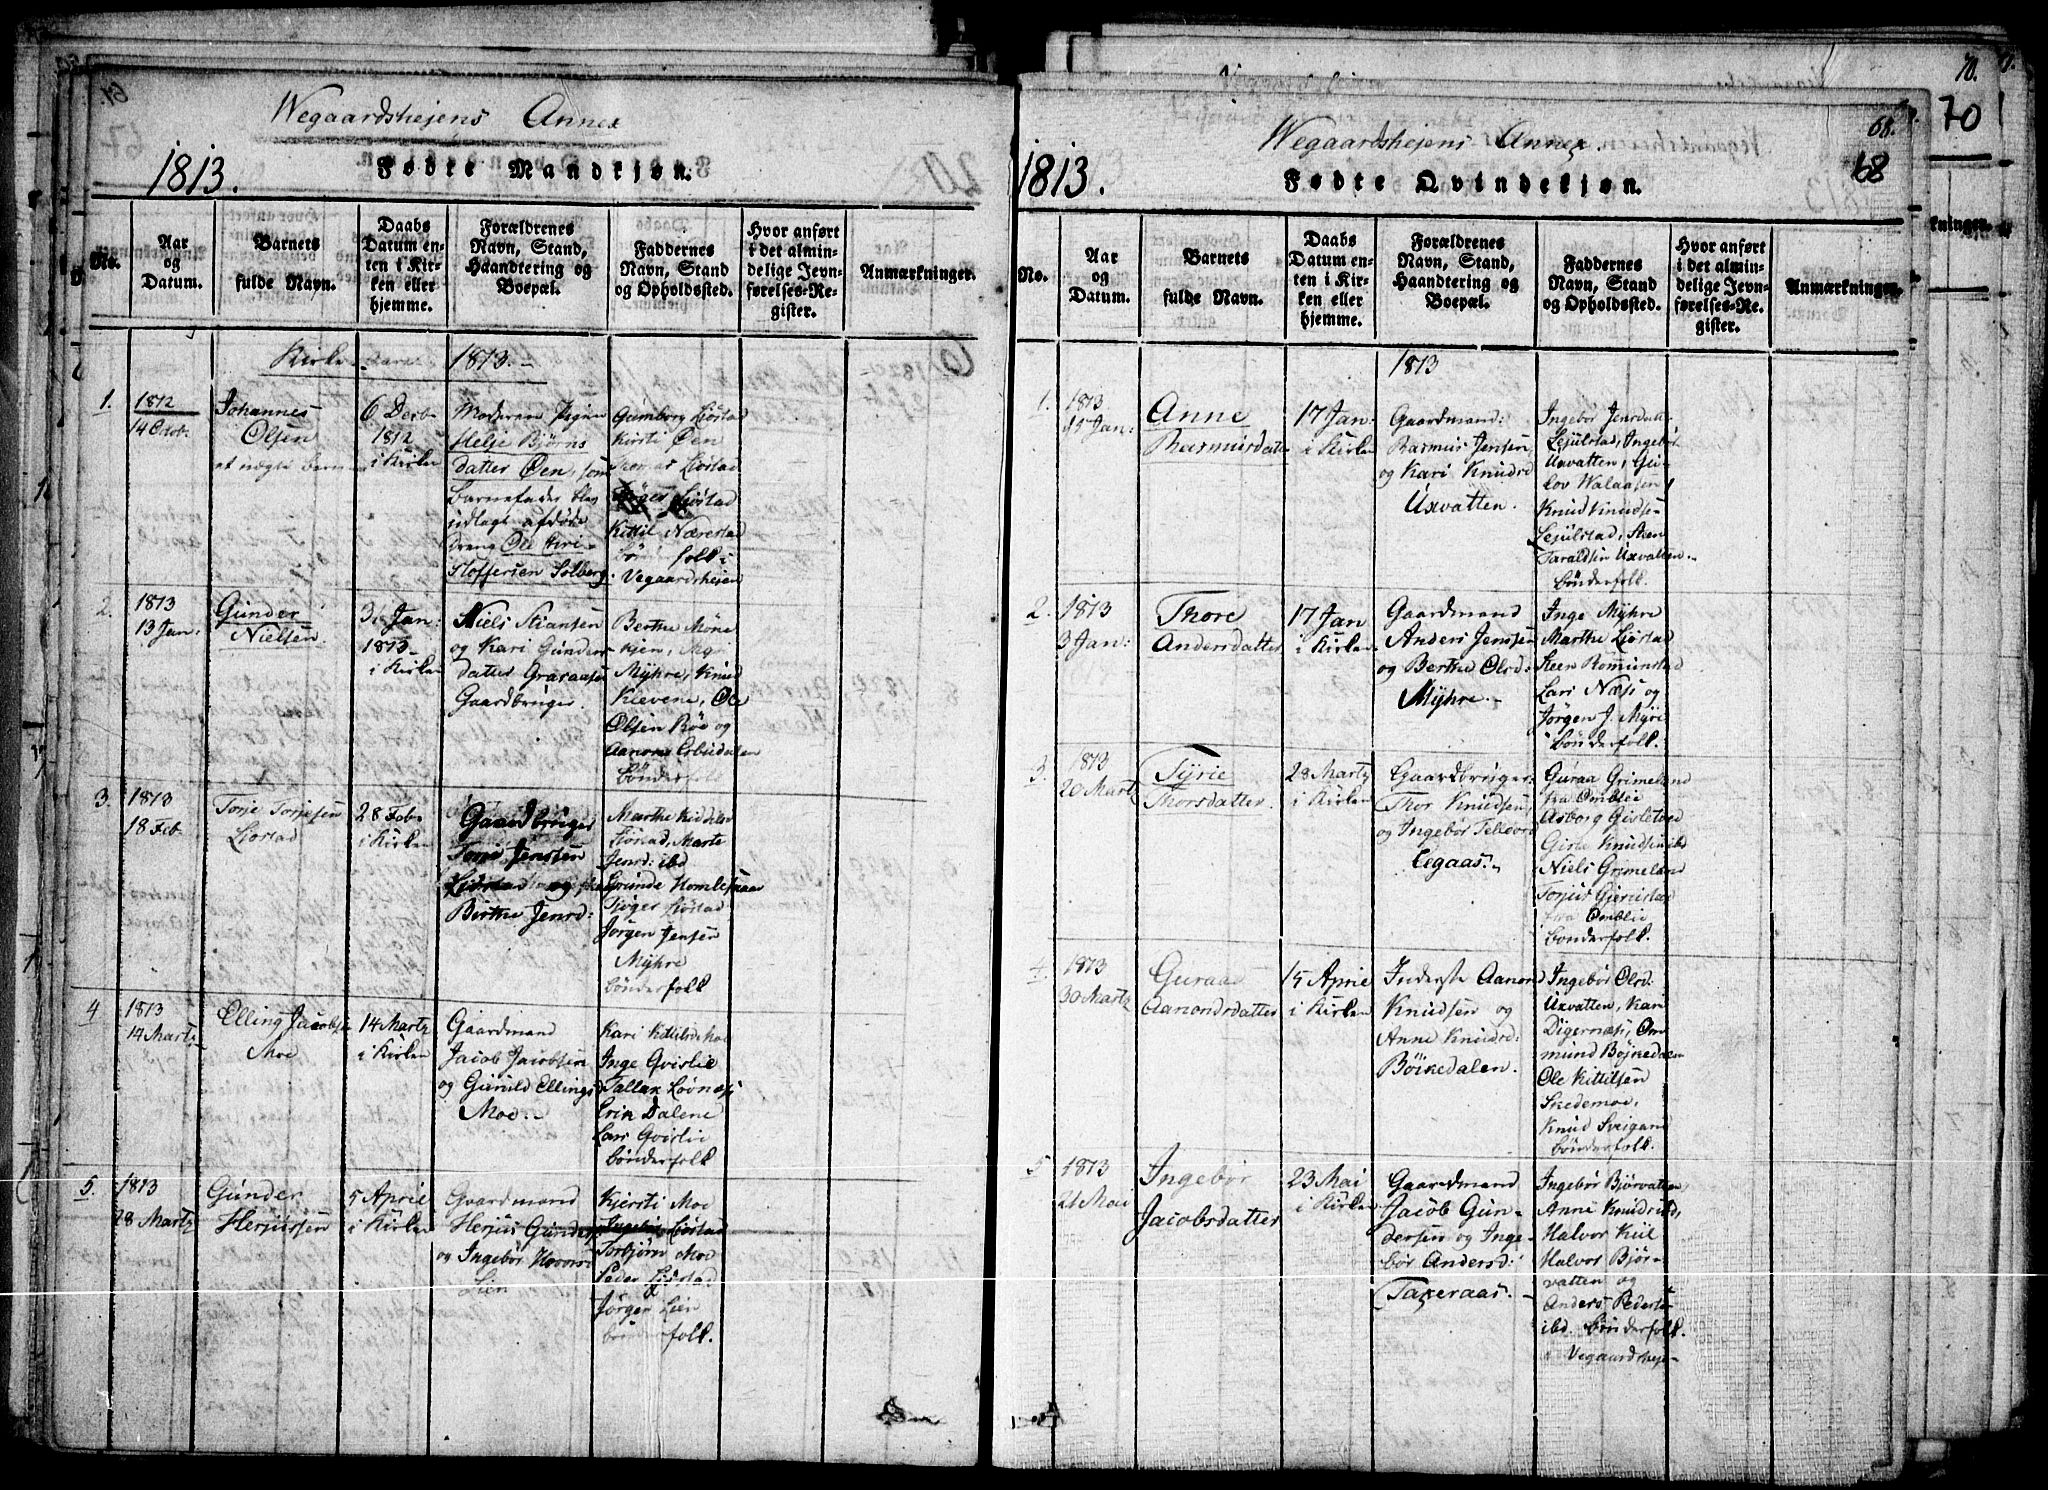 Wegaardshejens Annex
1813. Fødte Mandkjøn.
No.
Aar og Datum.
Barnets fulde Navn.
Daabs Datum enten i Kirken eller hjemme.
Forældrenes Navn, Stand, Haandtering og Boepæl.
Faddernes Navn, Stand og Opholdssted.
Hvor anført i det almindelige Jevnførelses-Register.
Anmærkninger.
Kirke Aaret 1813.-
1.
1812
14 Octob:
Johannes
Olsen
et uægte barn
6 Decb-
1812
i Kirken
Moderen Pigen
Helje Björns
datter Øen, som
barnefader blev
udlagt afdøde
Dreng Ole Kri-
stoffersen Solberg.
Gumborg Liøstad
Kirsti Øen
Thomas Liøstad
Liøstad
Kittil Nærestad
bönderfolk i
Vegaardsheien
2.
1813
13 Jan:
Gunder
Nielsen.
31 Jan:
1813-
i Kirken
Niels Stiansen
og Kari Gunders
datter Graraasen
Gaardbruger.
Berthe Möne
kjen,
Myhre, Knud
Klevene, Ole
Olsen Röe og
Aanon
bönderfolk
3.
1813
18 Feb-
Torje Torjesen
Liostad
28 Feb-
i Kirken
Gaardbruger
Torje Jensen
Liøstad og
Birthe Jensd:
Marthe
Liöstad, Marte
Jensd: ibd
Gunde Homlesmaar
Röger Liöstad
Jörgen Jensen
Myhre
bönderfolk
4
1813
14 Martz
Elling Jacobsen
Moe
14 Martz
i Kirken
Gaardmand
Jacob Jacobsen
og Gunild Ellingsd
Moe.-
Kari Kittilsd Moe
Inge Qvislie
Tallax Lövnæs
Erik Dalene
Lars Qvislie
bönderfolk
5.
1813
28 Martz
Gunder
Herjusen
5 April
i Kirken
Gaardmand
Herjus Gunders
og Ingebör Hovorsd
Lien
Kjersti Moe
Liøstad
Torbjörn Moe
Peder Liøstad
Jörgen Lien
bönderfolk.
Wegaardshejens Annex.
68.
68
70.
70
1813. Fødte Qvindekjøn.
No.
Aar og Datum.
Barnets fulde Navn.
Daabs Datum enten i Kirken eller hjemme.
Forældrenes Navn, Stand, Haandtering og Boepæl.
Faddernes Navn, Stand og Opholdssted.
Hvor anført i det almindelige Jevnførelses-Register.
Anmærkninger.
1813
1.
1813
Jan:
Anne
Rasmusdatter
17 Jan:
i Kirken
Gaardmand:
Rasmus Jensen
og Kari Knudsd
Uxvatten.
Ingebör Jensdatt
Lejulstad, Ingebör
Uxvatten, Gu-
lov Walaasen
Knud Knudsen
Lejulstad, Steen
Taraldsen Uxvatten.
bönderfolk.
2.
1813
3 Jan:
Thore
Andersdatter
17 Jan
i Kirken
Gaardmand
Anders Jensen
og Berthe Olsd:
Myhre.-
Inge Myhre
Marthe Liöstad
Steen Romunstad
Lars Næs og
Jörgen J. Myre
bönderfolk.
3.
1813
20 Martz
Tyrie
Thorsdatter.
28 Martz
i Kirken
Gaardbruger:
Thor Knudsen
og Ingebör Tellevsd
Legaas.
Guraa Grimeland
fra Omblie
Aasborg
Knudsen ibd
Niels Grimeland
Torjus
fra Omblie
bonderfolk.
4.
1813
30 Martz
Guraa
Aanondsdatter
15 Aprie
i Kirken
Inderste Aanond
Knudsen og
Anne Knudsd:
Böikedalen.
Ingebör Olsd:
Uxvatten, Kari
Digernæs, Om
mund Böjkedalen
Ole Kittilsen
Skedemoe.
Knud Sveigand
bönderfolk.
5
1813
21 Mai
Ingebör
Jacobsdatter
23 Mai
i Kirken
Gaardmand
Jacob Gun-
dersen og Inge-
bör Andersd:
Taxeraas.-
Ingebör Björvatten,
Anne Knudsd ibd,
Halvor Kiil
Halvor Björ-
vatten og
Anders Pederse
ibd. bönderfolk.
Vegaardsheje-